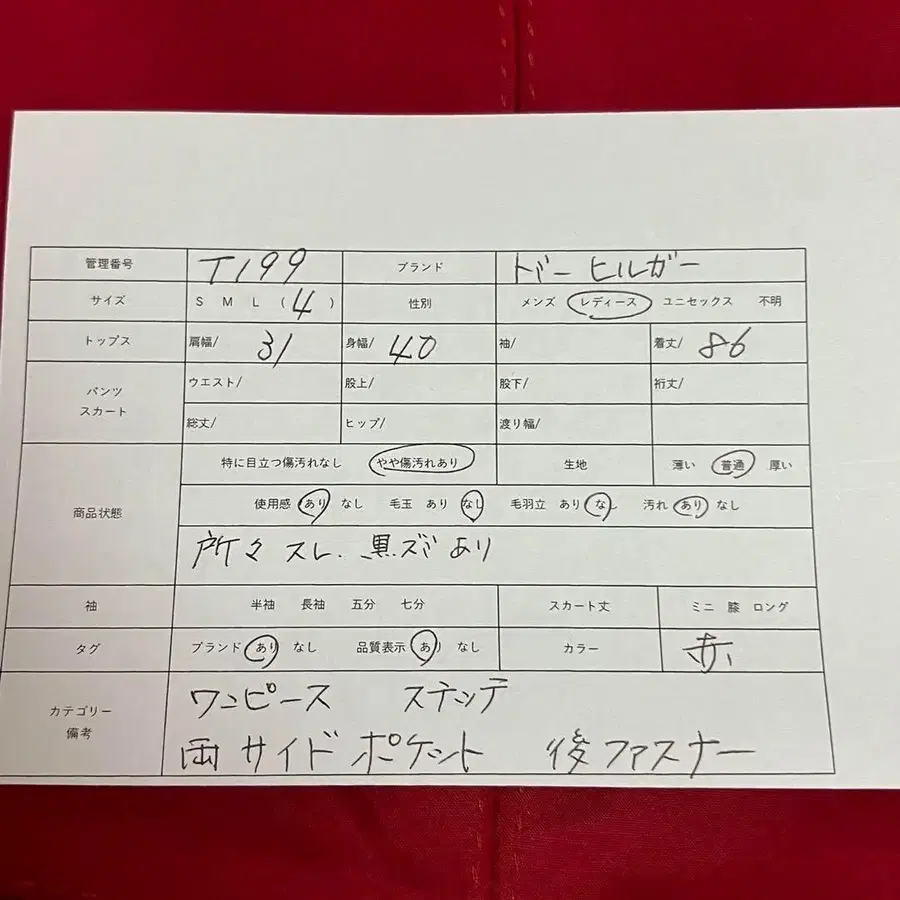 管理番号 T199 ブランド トバーヒルガー
サイズ S M L (4) 性別 メンズ レディース ユニセックス 不明
トップス 肩幅/ 31 身幅/ 40 袖/ 着丈/ 86
パンツ スカート ウエスト/ 股上/ 股下/ 裄丈/
総丈/ ヒップ/ 渡り幅/
商品状態 特に目立つ傷汚れなし やや傷汚れあり 生地 薄い 普通 厚い
使用感 あり なし 毛玉 あり なし 毛羽立 あり なし 汚れ あり なし
所々スレ、黒ズミあり
袖 半袖 長袖 五分 七分 スカート丈 ミニ 膝 ロング
タグ ブランド あり なし 品質表示 あり なし カラー 赤
カテゴリー 備考 ワンピース ステッチ
両サイドポケット 後ファスナー